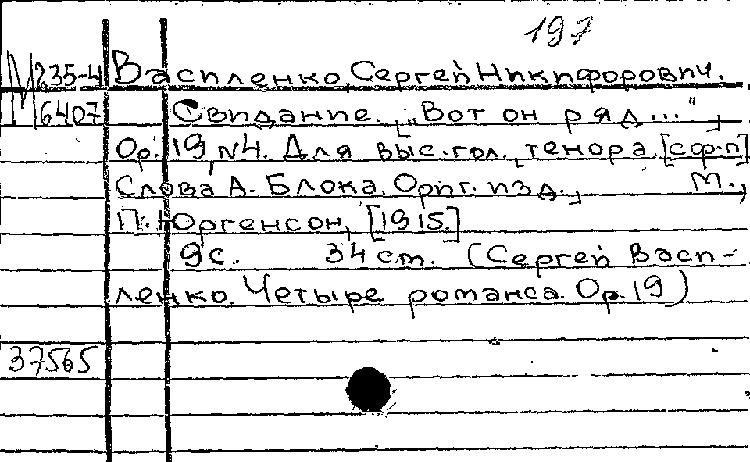 197
М 235-4 Василенко, Сергей Никифорович.
6407 Свидание. [„Вот он ряд..."]
Ор. 19, №4. Для выс. гол. тенора [с ф-п]
Слова А. Блока. Ориг. изд. М.,
П. Юргенсон, [1915.]
9с. 34 cm. (Сергей Васи-
ленко. Четыре романса. Ор. 19)
37565